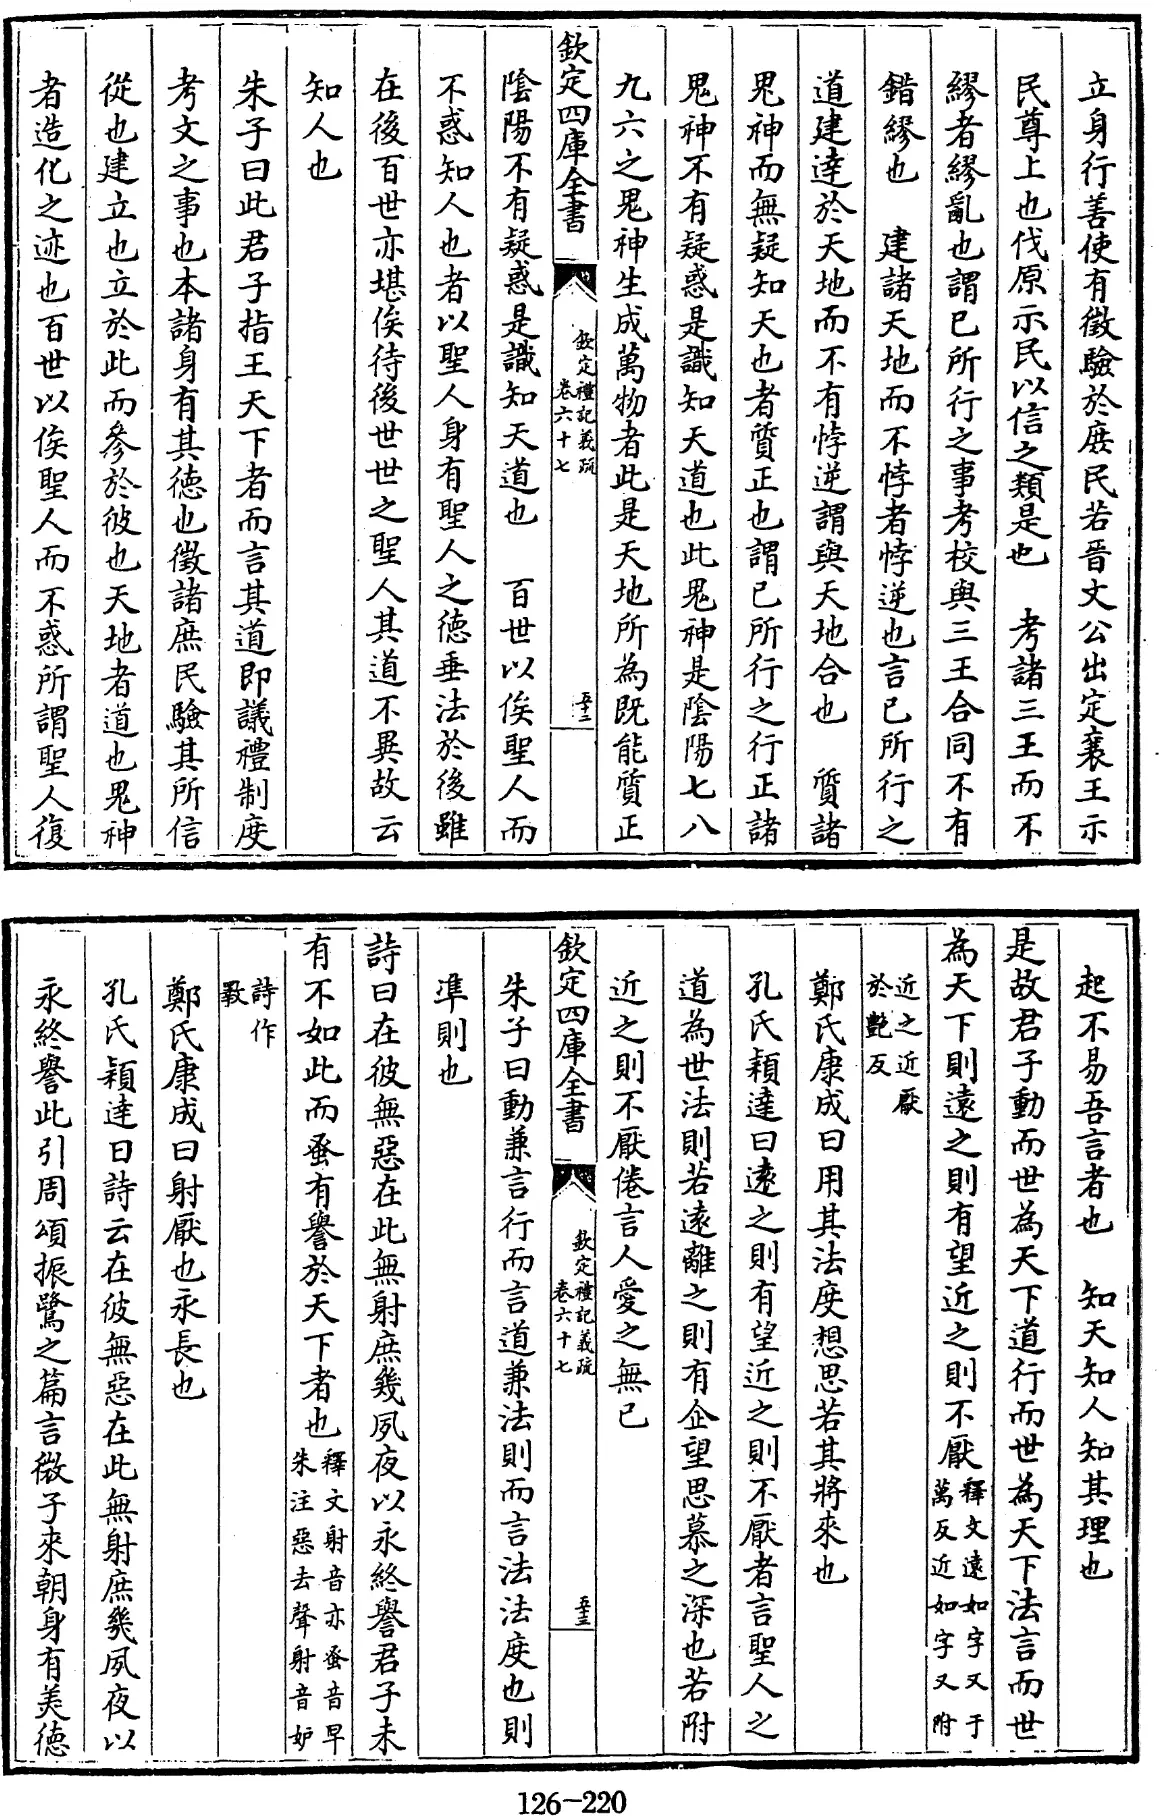 立身行善使有徵驗於庶民若晉文公出定襄王示
民尊上也伐原示民以信之類是也　考諸三王而不
繆者繆亂也謂已所行之事考校與三王合同不有
錯繆也　建諸天地而不悖者悖逆也言已所行之
道建達於天地而不有悖逆謂與天地合也　質諸
鬼神而無疑知天也者質正也謂已所行之行正諸
鬼神不有疑惑是識知天道也此鬼神是陰陽七八
九六之鬼神生成萬物者此是天地所為既能質正
欽定四庫全書
欽定禮記義疏
卷六十七
五十二
陰陽不有疑惑是識知天道也　百世以俟聖人而
不惑知人也者以聖人身有聖人之德垂法於後雖
在後百世亦堪俟待後世世之聖人其道不異故云
知人也
朱子曰此君子指王天下者而言其道即議禮制度
考文之事也本諸身有其德也徵諸庶民驗其所信
從也建立也立於此而參於彼也天地者道也鬼神
者造化之迹也百世以俟聖人而不惑所謂聖人復
起不易吾言者也　知天知人知其理也
是故君子動而世為天下道行而世為天下法言而世
為天下則遠之則有望近之則不厭釋文遠如字又于
萬反近如字又附
近之近厭
於艷反
鄭氏康成曰用其法度想思若其將來也
孔氏穎達曰遠之則有望近之則不厭者言聖人之
道為世法則若遠離之則有企望思慕之深也若附
近之則不厭倦言人愛之無已
欽定四庫全書
欽定禮記義疏
卷六十七
五十三
朱子曰動兼言行而言道兼法則而言法法度也則
準則也
詩曰在彼無惡在此無射庶幾夙夜以永終譽君子未
有不如此而蚤有譽於天下者也釋文射音亦蚤音早
朱注惡去聲射音妒
詩作
斁
鄭氏康成曰射厭也永長也
孔氏穎達曰詩云在彼無惡在此無射庶幾夙夜以
永終譽此引周頌振鷺之篇言微子來朝身有美德
126-220